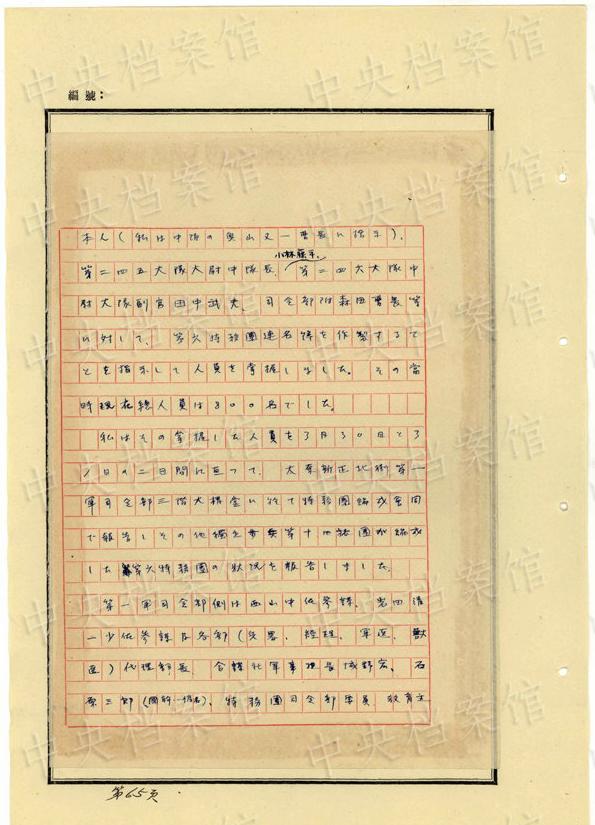 編號：
本人（私は中隊の奥山又一曹長に 
小林藤平、
第二四五大隊大尉中隊長、第二四六大隊中
尉大隊副官田中武夫、司令部附森田曹長等
に対して、第六特務團連名簿を作製するこ
とを指示して人員を掌握しました。その當
時現在總人員は800名でした。
私はその掌握した人員を3月30日と3
1日の二日間に亘って、太原新正北街第一
軍司令部三階大楼会に於て特務團編成会同
で報告しその他獨立歩兵第十四旅團が編成
した第六特務團の状況を報告しました。
第一軍司令部側は西山中佐参謀、
一少佐参謀各部（兵器、経理、軍医、獣
医）代理部長、合謀社軍事班長城野宏、石
原三郎 特務團司令部要員 教育主
第65页
中央档案馆